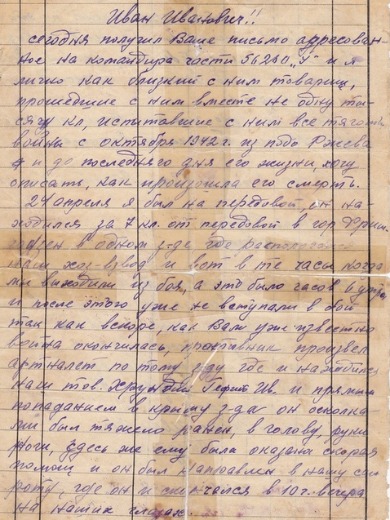 Иван Иванович!!
сегодня получил Ваше письмо адресован
ное на командира части 56240 „У" и я
лично как близкий с ним товарищ,
прошедшие с ним вместе не одну ты-
сячу кл, испытавшие с ним все тягости
войны с октября 1942 г. из подо Ржева
и до последнего дня его жизни, могу
описать, как произошла его смерть.
24 апреля я был на передовой, он на-
ходился за 7 кл. от передовой в гор
в одном з-де где
наш хоз-взвод и вот в те часы когда
мы выходили из боя, а это было часов 6 утра
и после этого уже не вступали в бой
так как вскоре, как Вам уже известно
война окончилась, противник произвел
артналет по тому з-ду где и находился
наш тов. и прямым
попаданием в крышу з-да он осколка
ми был тяжело ранен, в голову, руки
ноги, здесь же ему была оказана скорая
помощ и он был направлен в нашу сан
роту, где он и скончался в 10 г. вечера
на наших глазах